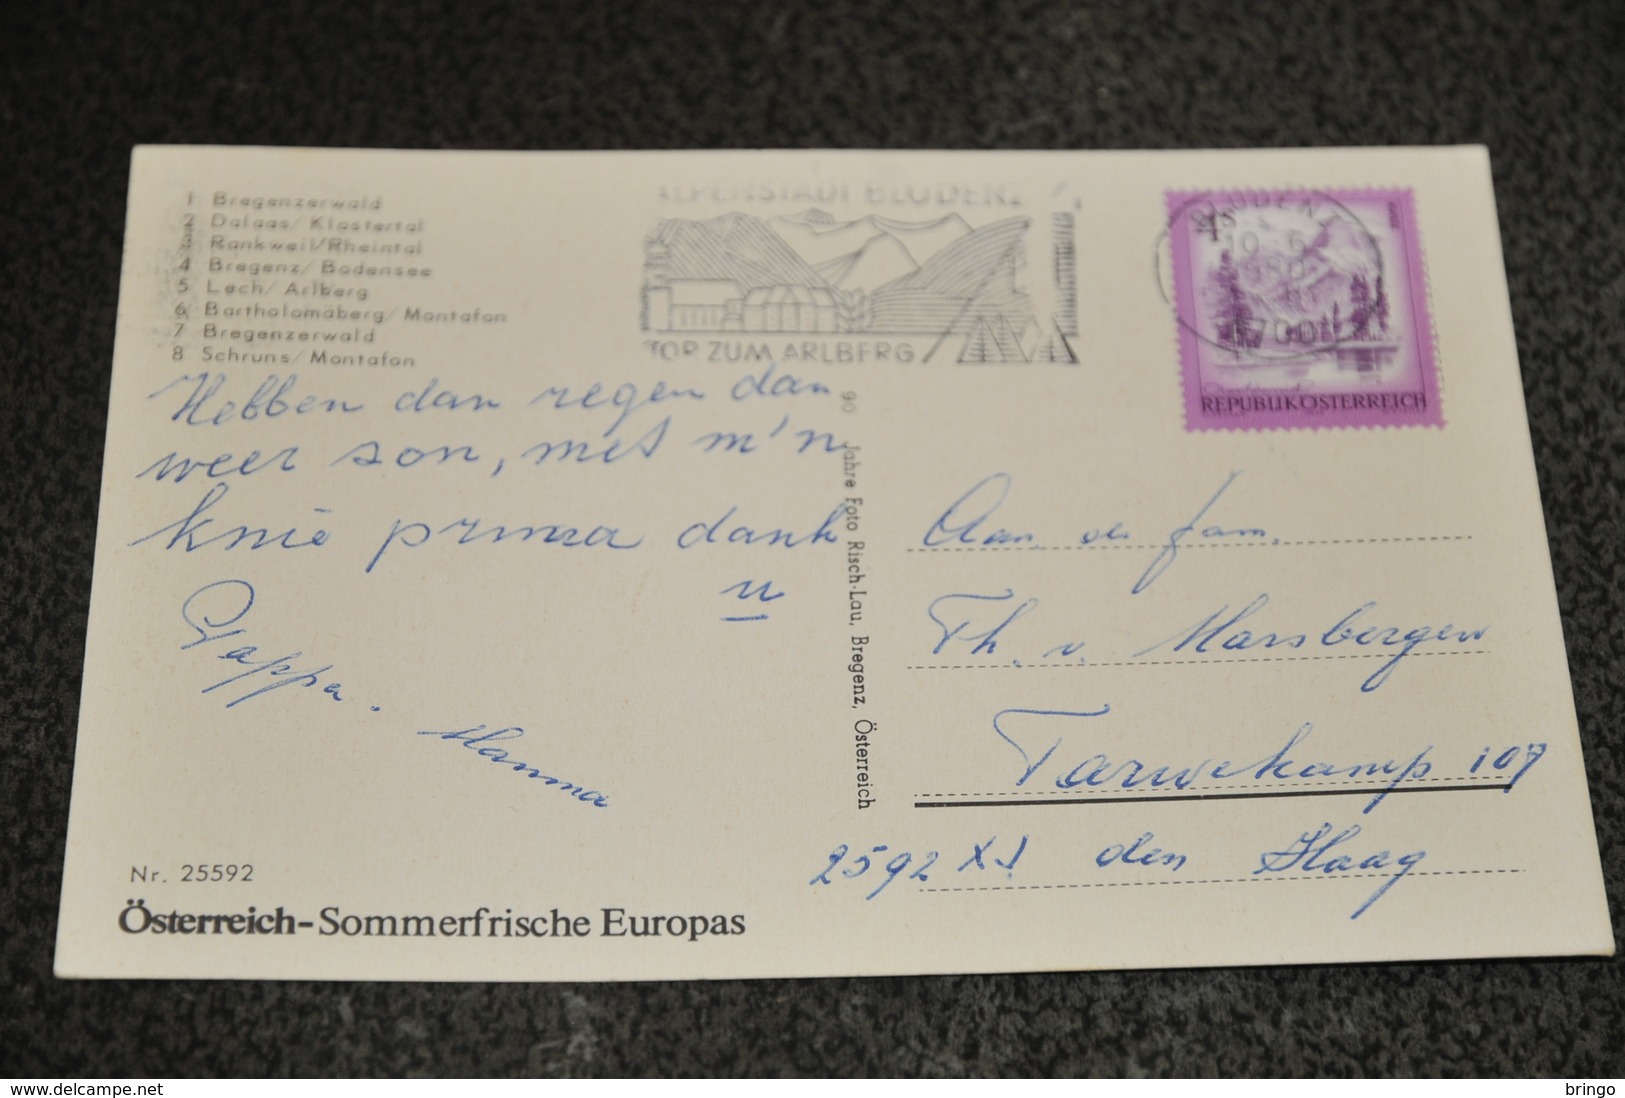 1 Bregenzerwald
2 Dalaas/Klostertal
3 Rankweil/Rheintal
4 Bregenz/Bodensee
5 Lech/Arlberg
6 Bartholomäberg/Montafon
7 Bregenzerwald
8 Schruns/Montafon
LPENSTADT BLUDENZ
TOR ZUM ARLBERG
4S
REPUBLIK ÖSTERREICH
Hebben dan regen dan
weer son, met m'n
knie prima dank
u
Pappa. Mamma
90 Jahre Foto Risch-Lau, Bregenz, Österreich
Aan de fam.
Th. v. Marsbergen
Tarwekamp 107
2592 XJ den Haag
Nr. 25592
Österreich-Sommerfrische Europas
delcampe.net
bringo